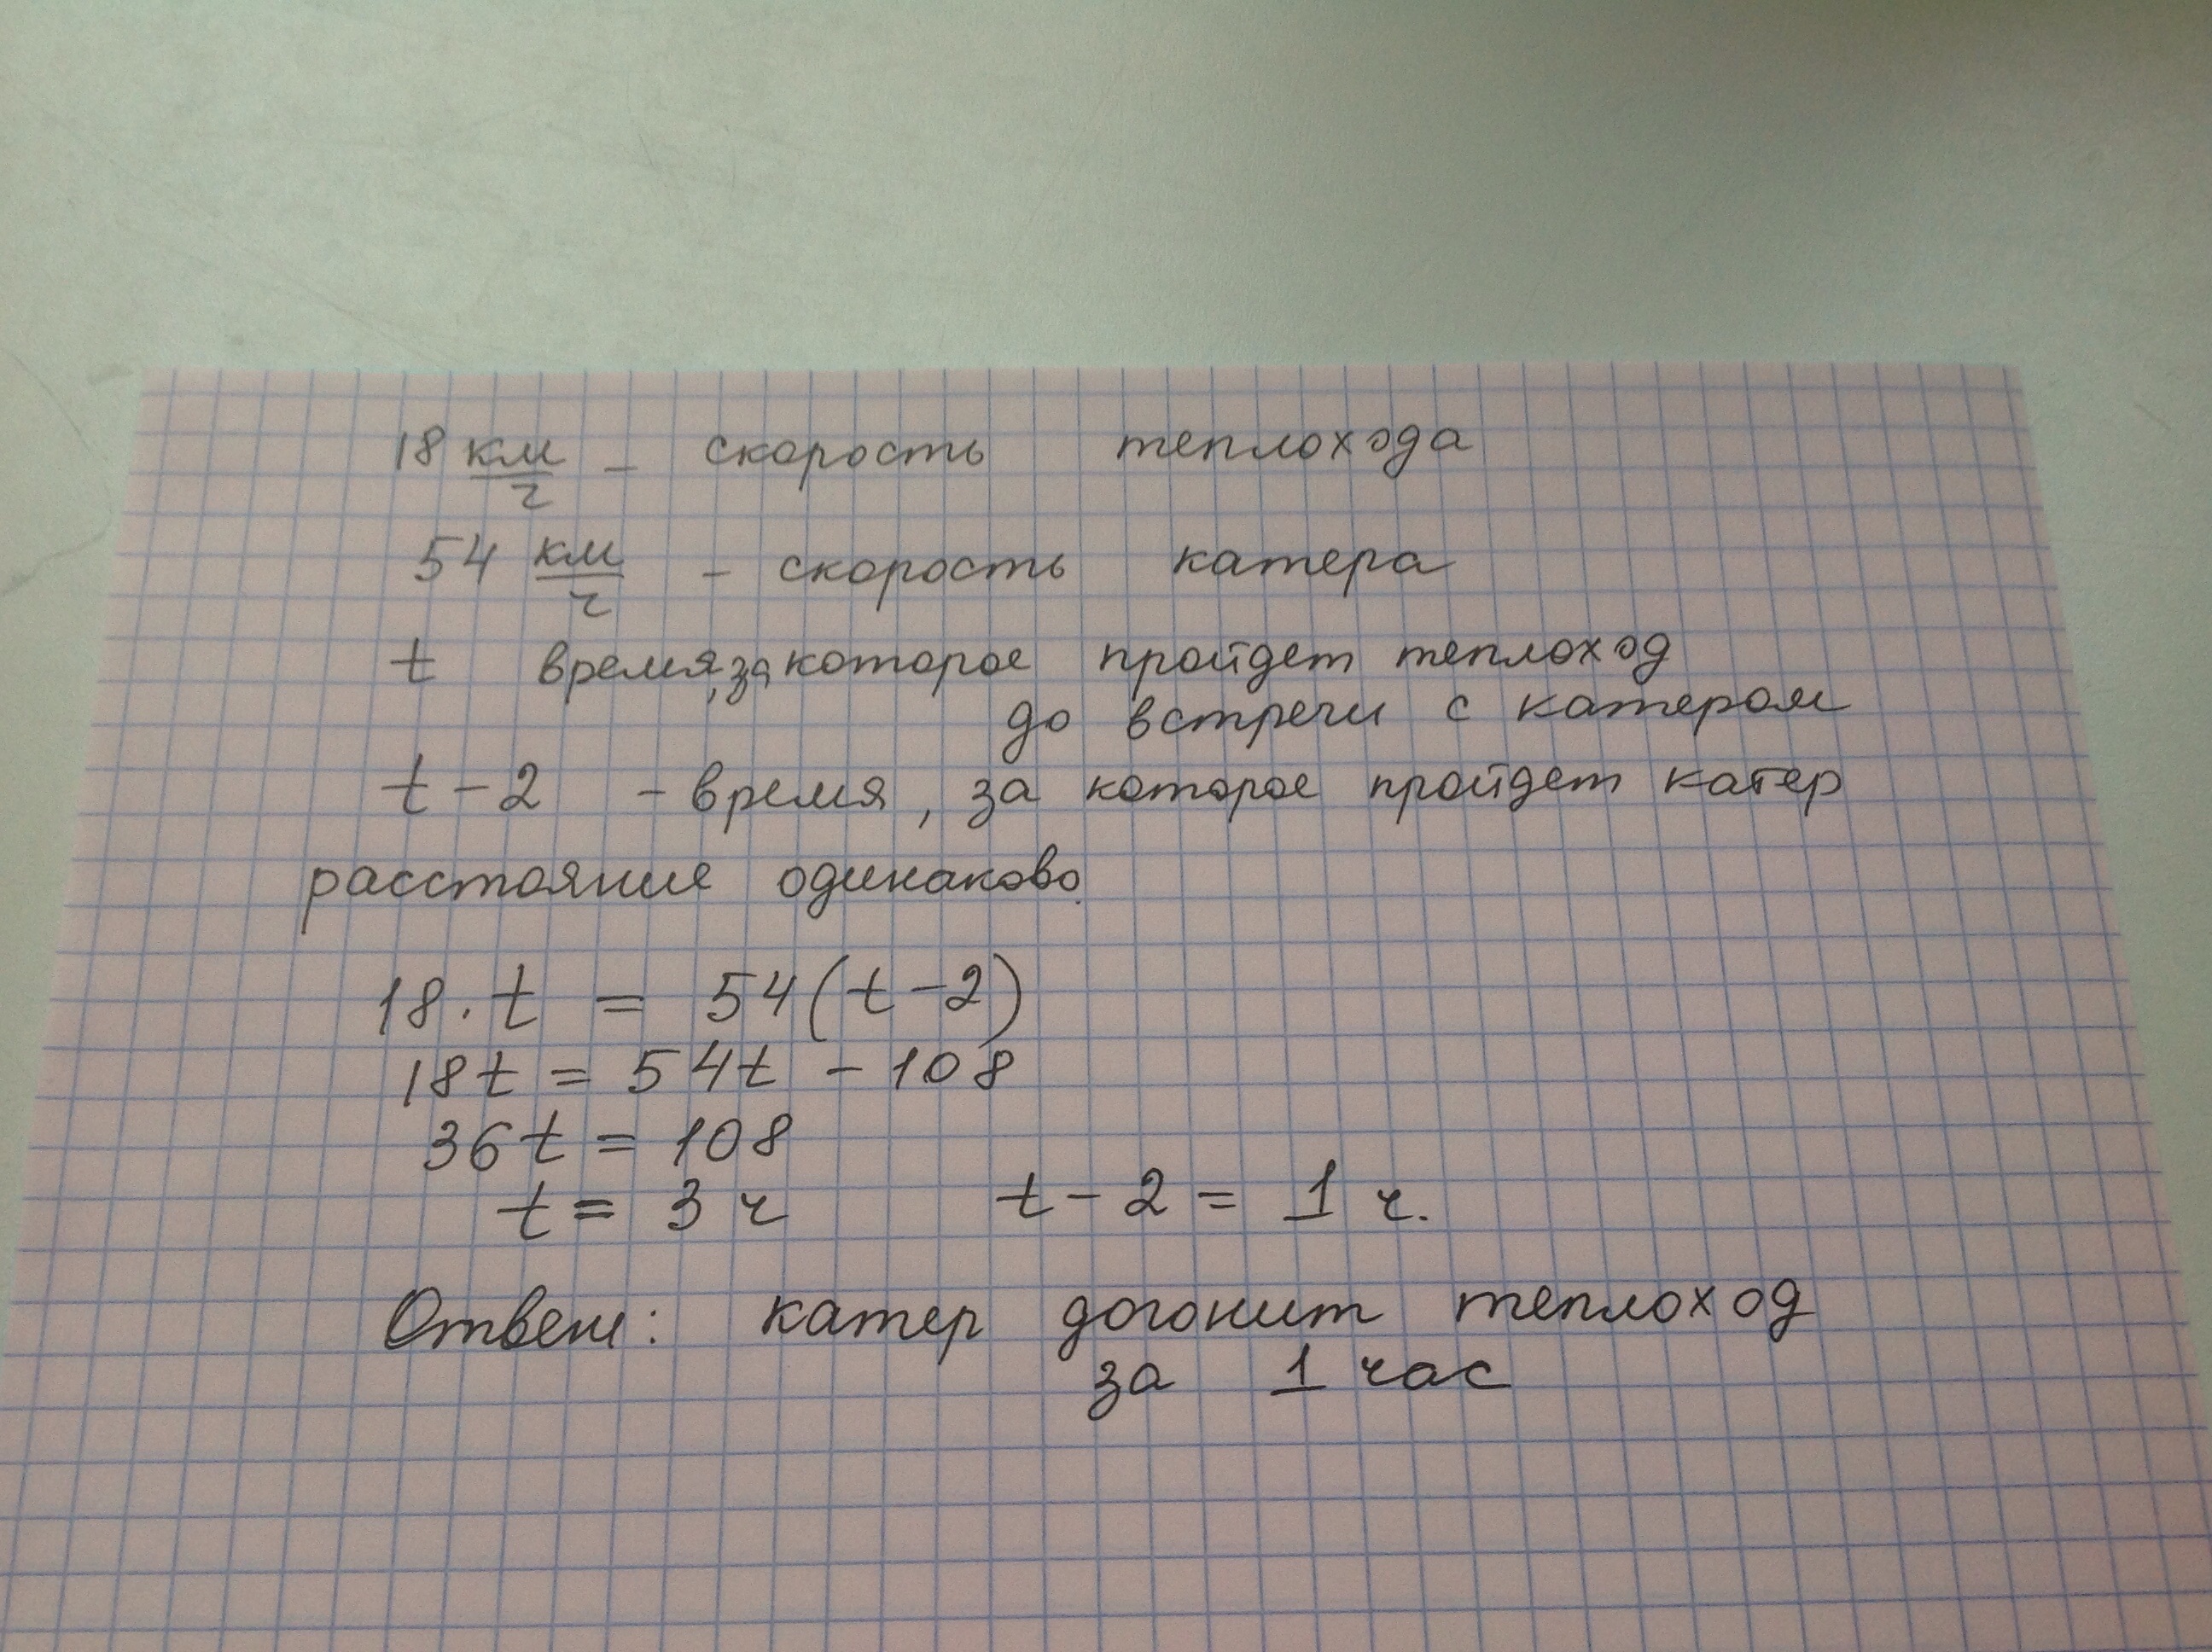 18 км/ч - скорость теплохода
54 км/ч - скорость катера
t время, за которое пройдет теплоход
до встречи с катером
t - 2 - время, за которое пройдет катер
расстояние одинаково.
18 · t = 54 (t - 2)
18t = 54t - 108
36t = 108
t = 3 ч t - 2 = 1 ч.
Ответ: катер догонит теплоход
за 1 час